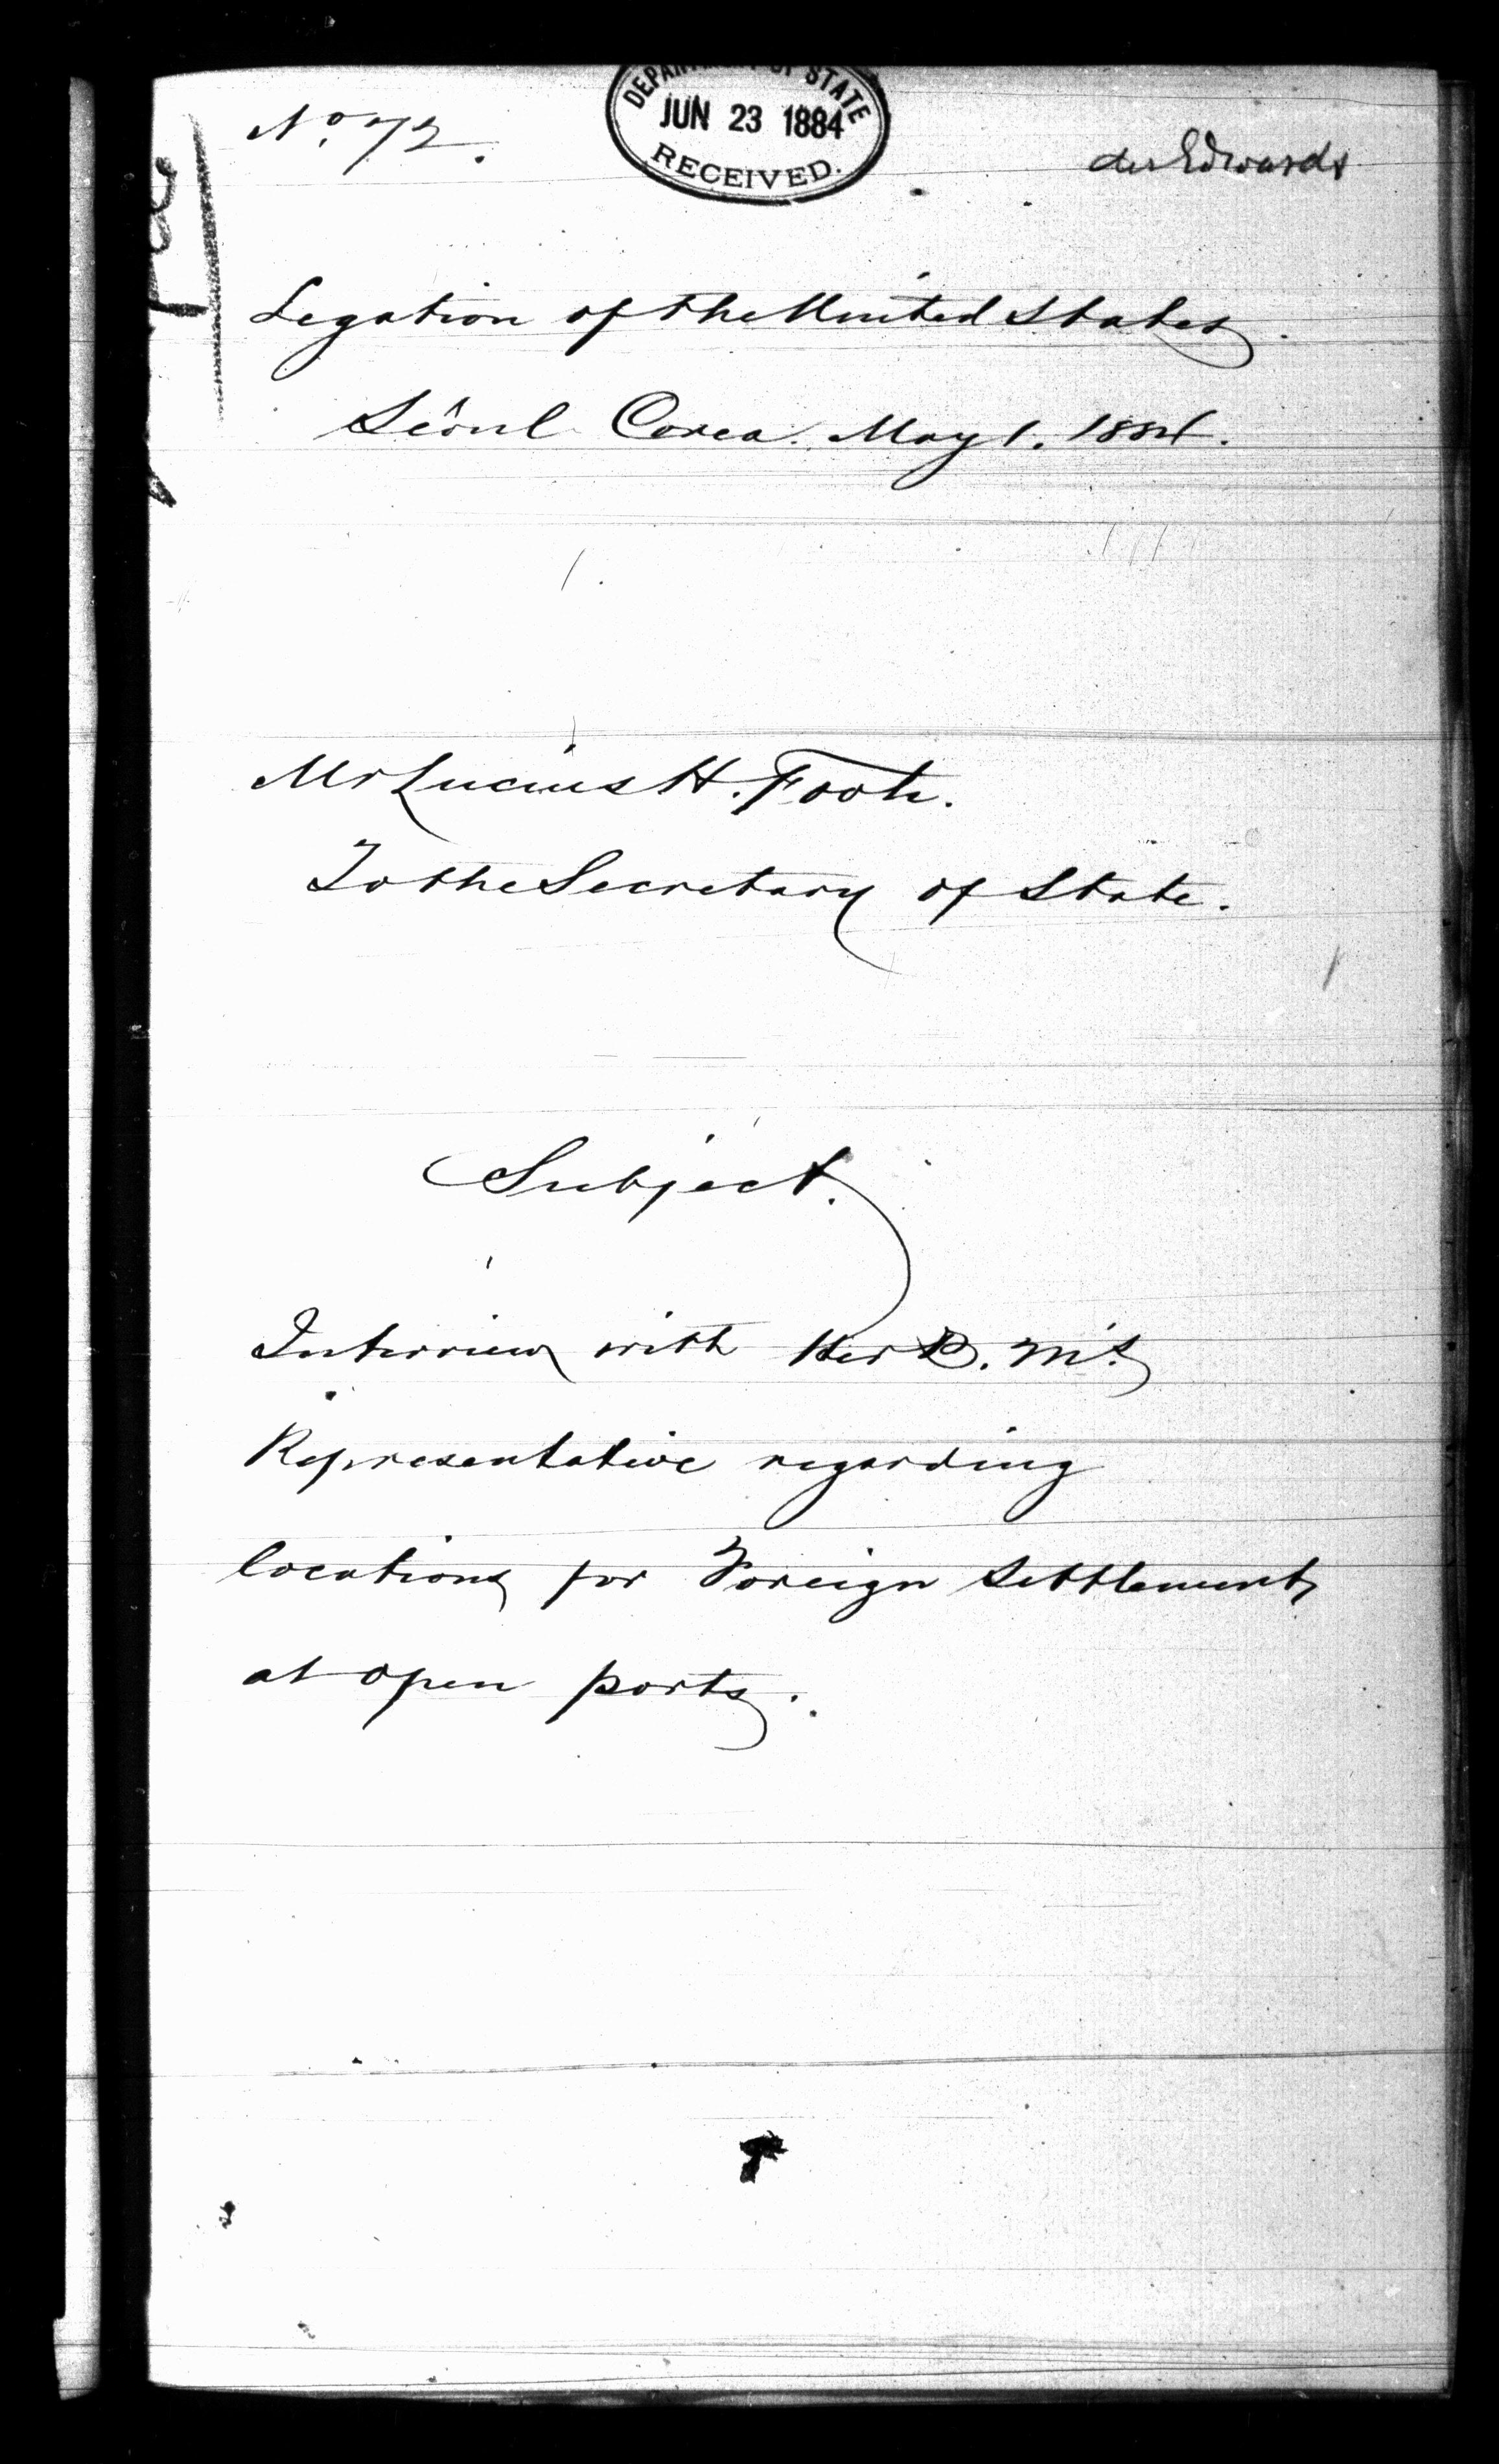 No. 72.
DEPARTMENT OF STATE
JUN 23 1884
RECEIVED.
Edwards
Legation of the United States.
Sèoul Corea. May 1. 1884.
Mr Lucius H. Foote.
To the Secretary of State.
Subject.
Interview with Her B. M's
Representative regarding
locations for Foreign Settlements
at open ports.